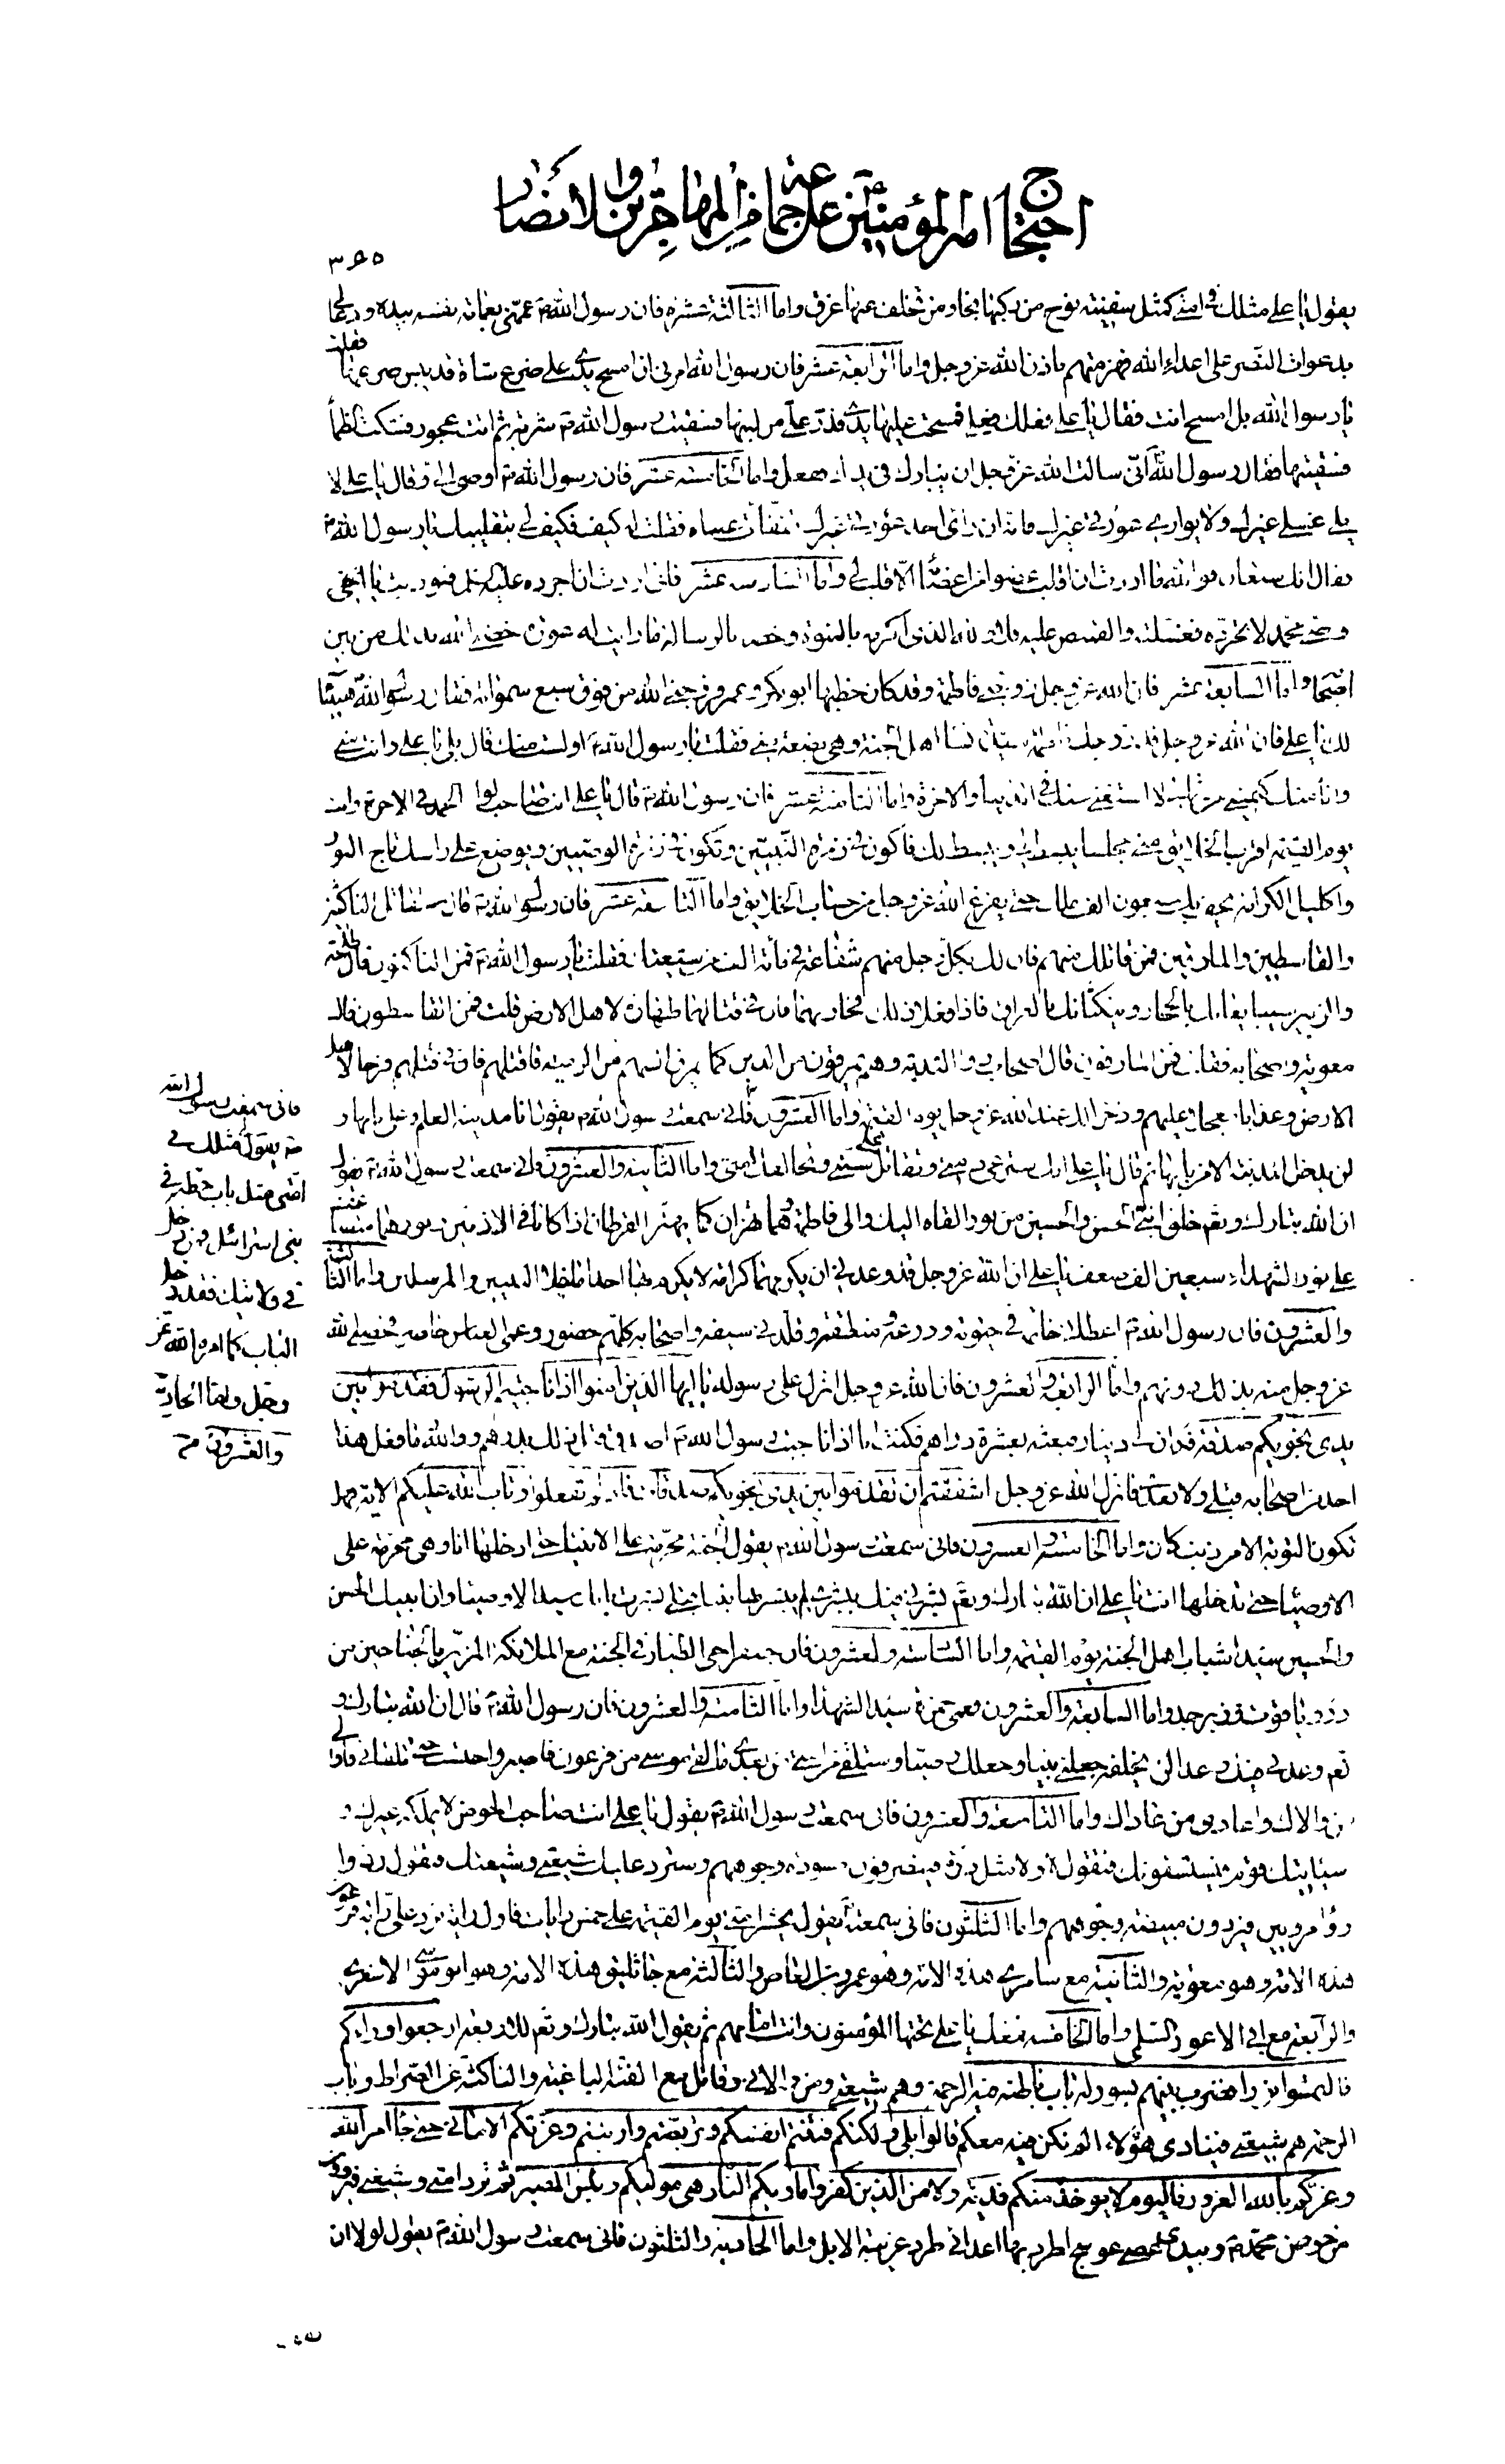 احتجاج امير المؤمنين ع على جماعة من المهاجرين والأنصار
٣٤٥
يقول يا علي مثلك في امتي كمثل سفينة نوح من ركبها نجا ومن تخلف عنها غرق واما الثالثة عشرة فان رسول الله ص عممني بعمامة نفسه بيده ودعا لي
بدعوات النصر على اعداء الله فهزمتهم باذن الله عز وجل واما الرابعة عشر فان رسول الله امرني ان امسح يدي على ضرع شاة قد يبس ضرعها فقلت
يا رسول الله بل امسح انت فقال يا علي فعلك فعلي فمسحت عليها يدي فدر علي من لبنها فسقيت رسول الله ص شربة ثم اتت عجوز فشكت الظمأ
فسقيتها فقال رسول الله اني سالت الله عز وجل ان يبارك في يدك ففعل واما الخامسة عشر فان رسول الله ص اوصى الي وقال يا علي لا
يلي غسلي غيرك ولا يواري عورتي غيرك فانه ان راى احد عورتي غيرك تفقأت عيناه فقلت له كيف فكيف لي بتقليبك يا رسول الله ص
فقال انك ستعان فوالله ما اردت ان اقلب عضوا من اعضائه الا قلب لي واما السادسة عشر فاني اردت ان اجرده فنوديت يا اخي
وصي محمد لا تجرده فغسلته والقميص عليه فلا والله الذي اكرمه بالنبوة وخصه بالرسالة ما رايت له عورة خصني الله بذلك من بين
اصحابه واما السابعة عشر فان الله عز وجل زوجني فاطمة وقد كان خطبها ابو بكر وعمر فزوجني الله من فوق سبع سمواته فقال رسول الله هنيئا
لك يا علي فان الله عز وجل قد زوجك فاطمة سيدة نساء اهل الجنة وهي بضعة مني فقلت يا رسول الله ص اولست منك قال بلى يا علي وانت مني
وانا منك كيميني من شمالي لا استغني عنك في الدنيا والاخرة واما الثامنة عشر فان رسول الله ص قال يا علي انت صاحب لواء الحمد في الاخرة وانت
يوم القيمة اقرب الخلايق مني مجلسا يبسط لي ويبسط لك فاكون في زمرة النبيين وتكون في زمرة الوصيين ويوضع على راسك تاج النور
واكليل الكرامة يحف بك سبعون الف ملك حتى يفرغ الله عز وجل من حساب الخلايق واما التاسعة عشر فان رسول الله ص قال ستقاتل الناكثين
والقاسطين والمارقين فمن قاتلك منهم فان لك بكل رجل منهم شفاعة في مائة الف من شيعتك فقلت يا رسول الله ص فمن الناكثون قال طلحة
والزبير سيبايعانك بالحجاز وينكثانك بالعراق فاذا فعلا ذلك فحاربهما فان في قتالهما طهارة لاهل الارض قلت فمن القاسطون قال
معوية واصحابه فقلت فمن المارقون قال اصحاب ذي الثدية وهم يمرقون من الدين كما يمرق السهم من الرمية فاقتلهم فان في قتلهم فرجا لاهل
الارض وعذابا معجلا عليهم وذخرا لك عند الله عز وجل يوم القيمة واما العشرون فاني سمعت رسول الله ص يقول انا مدينة العلم وعلي بابها
لن يدخل المدينة الا من بابها ثم قال يا علي انك سترعى ذمتي وتقاتل على سنتي وتخالفك امتي واما الثانية والعشرون فاني سمعت رسول الله ص يقول
ان الله تبارك وتعم خلق ابني الحسن والحسين من نور القاه اليك والى فاطمة وهما يهتزان كما يهتز القرطان اذا كانا في الاذنين ونورهما متضاعف
على نور الشهداء سبعين الف ضعف يا علي ان الله عز وجل قد وعدني ان يكرمهما كرامة لا يكرم بها احدا ما خلا النبيين والمرسلين واما الثالثة
والعشرون فان رسول الله ص اعطاني خاتمه في حيوته ودرعه ومنطقته وقلدني سيفه واصحابه كلهم حضور وعمي العباس حاضر فخصني الله
عز وجل منه بذلك دونهم واما الرابعة والعشرون فان الله عز وجل انزل على رسوله يا ايها الذين امنوا اذا ناجيتم الرسول فقدموا بين
يدي نجويكم صدقة فكان لي دينار فبعته بعشرة دراهم فكنت اذا ناجيت رسول الله ص اصدق قبل ذلك بدرهم ووالله ما فعل هذا
احد من اصحابه قبلي ولا بعدي فانزل الله عز وجل ااشفقتم ان تقدموا بين يدي نجويكم صدقات فاذ لم تفعلوا وتاب الله عليكم الاية فهل
تكون التوبة الا من ذنب كان واما الخامسة والعشرون فاني سمعت رسول الله ص يقول الجنة محرمة على الانبياء حتى ادخلها انا وهي محرمة على
الاوصياء حتى تدخلها انت يا علي ان الله تبارك وتعم بشرني فيك ببشرى لم يبشر بها نبيا قبلي بشرني بانك سيد الاوصياء وان ابنيك الحسن
والحسين سيدا شباب اهل الجنة يوم القيمة واما السادسة والعشرون فان جعفرا اخي الطيار في الجنة مع الملائكة المزين بالجناحين من
در وياقوت وزبرجد واما السابعة والعشرون فعمي حمزة سيد الشهداء واما الثامنة والعشرون فان رسول الله ص قال ان الله تبارك و
تعم وعدني فيك وعدا لن يخلفه جعلني نبيا وجعلك وصيا وستلقى من امتي من بعدي ما لقي موسى من فرعون فاصبر واحتسب حتى تلقاني فاوالي
من والاك واعادي من عاداك واما التاسعة والعشرون فاني سمعت رسول الله ص يقول يا علي انت صاحب الحوض لا يملكه غيرك و
سياتيك قوم فيستسقونك فتقول لا ولا مثل ذرة فينصرفون مسودة وجوههم وسترد عليك شيعتي وشيعتك فتقول ردوا
رواء مرويين فيردون مبيضة وجوههم واما الثلثون فاني سمعته ص يقول يحشر امتي يوم القيمة على خمس رايات فاول راية ترد علي راية فرعون
هذه الامة وهو معوية والثانية مع سامري هذه الامة وهو عمرو بن العاص والثالثة مع جاثليق هذه الامة وهو ابو موسى الاشعري
والرابعة مع ابي الاعور السلمي واما الخامسة فمعك يا علي تحتها المؤمنون وانت امامهم ثم يقول الله تبارك وتعم للاربعة ارجعوا وراءكم
فالتمسوا نورا فضرب بينهم بسور له باب باطنه فيه الرحمة وهم شيعتي ومن والاني وقاتل معي الفئة الباغية والناكثة عن الصراط وباب
الرحمة هم شيعتي فينادي هؤلاء الم نكن معكم قالوا بلى ولكنكم فتنتم انفسكم وتربصتم وارتبتم وغرتكم الاماني حتى جاء امر الله
وغركم بالله الغرور فاليوم لا يؤخذ منكم فدية ولا من الذين كفروا ماويكم النار هي موليكم وبئس المصير ثم ترد امتي وشيعتي فيروون
من حوض محمد ص وبيدي عصى عوسج اطرد بها اعدائي طرد غريبة الابل واما الحادية والثلثون فاني سمعت رسول الله ص يقول لولا ان
فاني سمعت رسول الله
ص يقول مثلك في
امتي مثل باب حطة في
بني اسرائيل فمن دخل
في ولايتك فقد دخل
الباب كما امره الله عز
وجل واما الحادية
والعشرون صح